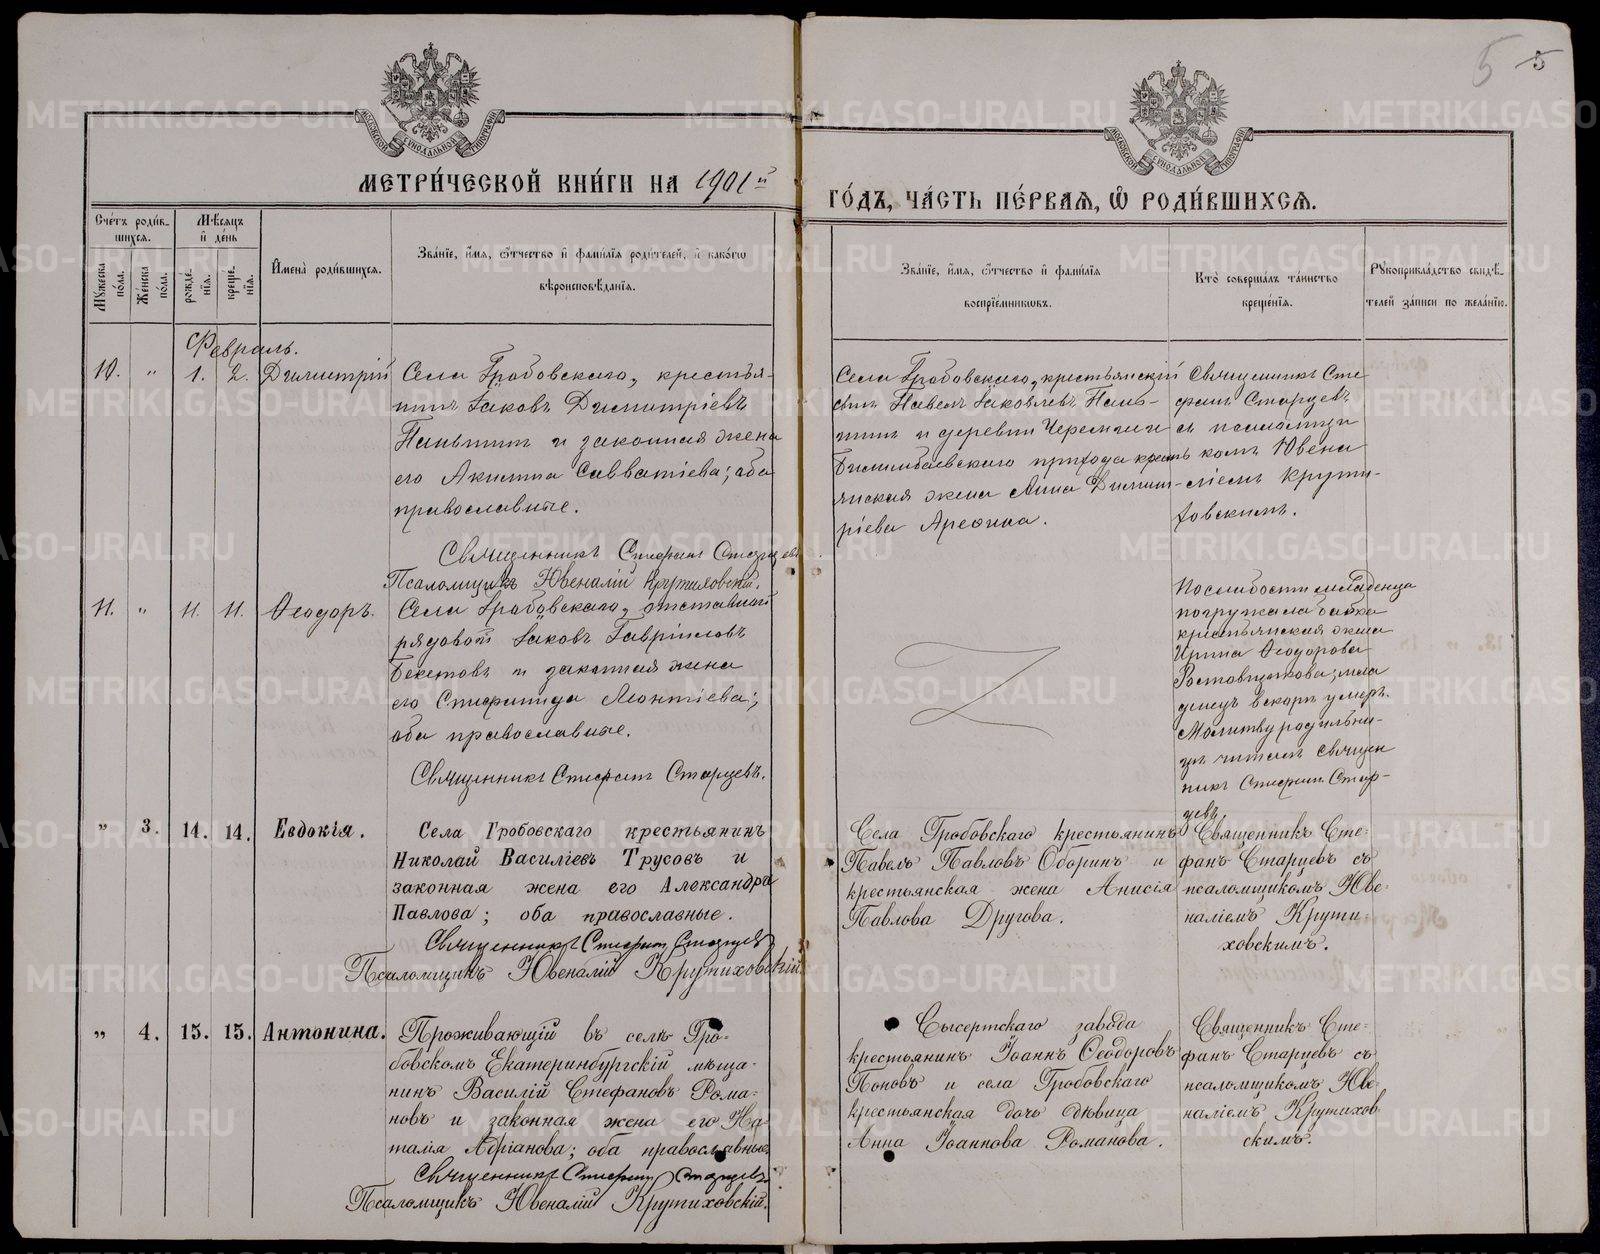 5 5
МОСКОВСКОЙ СѴНОДАЛЬНОЙ ТИПОГРАФІИ
МОСКОВСКОЙ СѴНОДАЛЬНОЙ ТИПОГРАФІИ
МЕТРИ́ЧЕСКОЙ КНИ́ГИ НА 1901й
ГО́ДЪ, ЧА́СТЬ ПЕ́РВАЯ, Ѡ РОДИ́ВШИХСЯ.
Сче́тъ роди́в-
шихся.
Мꙋ́жеска по́ла.
Же́нска по́ла.
Мѣ́сяцъ
и де́нь
рожде́нїя.
креще́нїя.
Имена̀ роди́вшихся.
Зва́нїе, и́мя, ѻ҆́тчество и фами́лїя роди́телей, и како́гѡ
вѣроисповѣ́данїя.
Зва́нїе, и́мя, ѻ҆́тчество и фами́лїя
воспрїе́мниковъ.
Кто̀ соверша́лъ та́инство
креще́нїя.
Рꙋкоприкла́дство свидѣ́-
телей за́писи по жела́нїю.
Февраль.
10. " 1. 2. Димитрій
Села Гробовскаго, крестья-
нинъ Іаковъ Димитріевъ
Паньшин и законная жена
его Акилина Савватіева; оба
православные.
Священникъ Стефанъ Старцевъ
Псаломщикъ Ювеналій Крутиховскій.
Села Гробовскаго, крестьянскій
сынъ Павелъ Іаковлевъ Пань-
шинъ и деревни Черемши
Билимбаевскаго прихода кресть
янская жена Анна Димит-
ріева Арефина.
Священникъ Сте
фанъ Старцевъ
съ псаломщи
комъ Ювена
ліемъ Крути-
ховскимъ.
11. " 11. 11. Ѳеодоръ.
Села Гробовскаго, отставной
рядовой Іаковъ Гавріиловъ
Бекетовъ и законная жена
его Стефанида Леонтіева;
оба православные.
Священникъ Стефанъ Старцевъ.
По слабости младенца
погружала бабка
крестьянская жена
Ирина Ѳеодорова
Ростовщикова; мла
денецъ вскорѣ умеръ.
Молитву родильни-
цѣ читалъ священ
никъ Стефанъ Стар-
цевъ
" 3. 14. 14. Евдокія.
Села Гробовскаго крестьянинъ
Николай Василіевъ Трусовъ и
законная жена его Александра
Павлова; оба православные.
Священникъ Стефанъ Старцевъ
Псаломщикъ Ювеналій Крутиховскій.
Села Гробовскаго крестьянинъ
Павелъ Павловъ Оборинъ и
крестьянская жена Анисія
Павлова Другова.
Священникъ Сте-
фанъ Старцевъ съ
псаломщикомъ Юве-
наліемъ Крути
ховскимъ.
" 4. 15. 15. Антонина.
Проживающій въ селѣ Гро-
бовскомъ Екатеринбургскій мѣща-
нинъ Василій Стефановъ Рома-
новъ и законная жена его На-
талія Адріанова; оба православные
Священникъ Стефанъ Старцевъ
Псаломщикъ Ювеналій Крутиховскій.
Сысертскаго завода
крестьянинъ Іоаннъ Ѳеодоровъ
Поповъ и села Гробовскаго
крестьянская дочь дѣвица
Анна Іоаннова Романова.
Священникъ Сте-
фанъ Старцевъ съ
псаломщикомъ Юве-
наліемъ Крутихов
скимъ.
METRIKI.GASO-URAL.RU